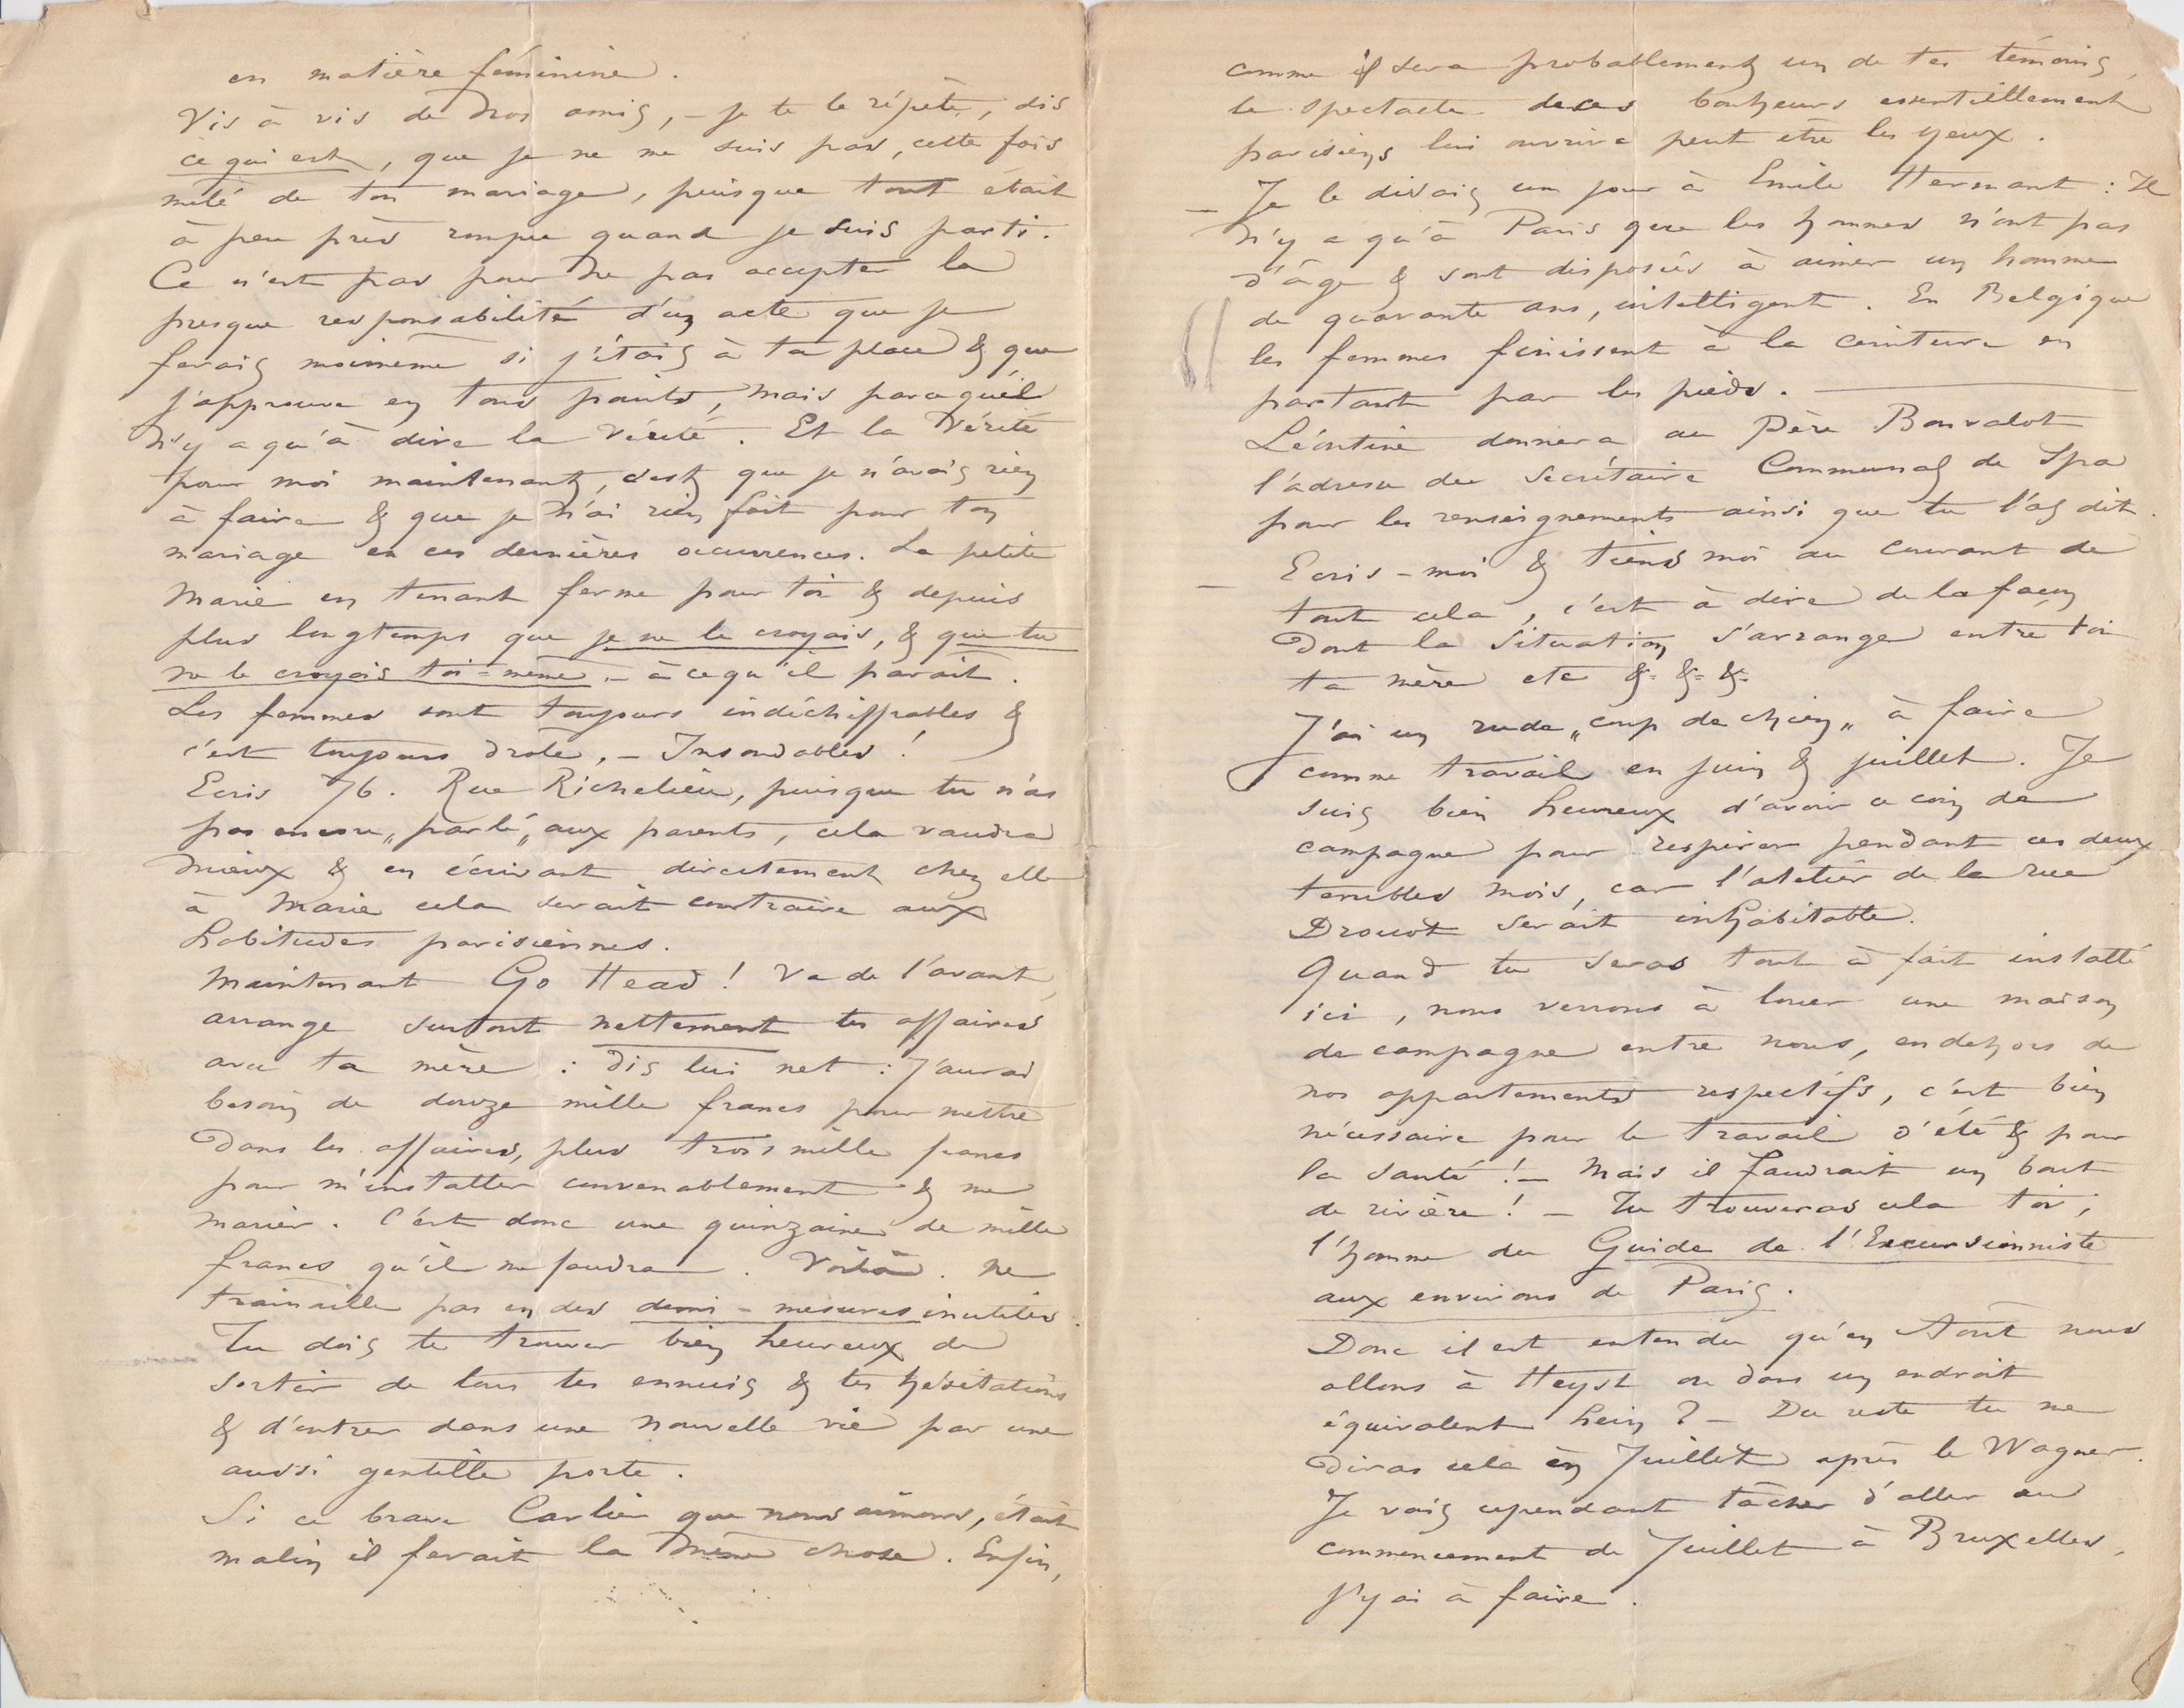 en matière féminine.
Vis à vis de nos amis, – je te le répète, dis
ce qui est, que je ne me suis pas, cette fois
mêlé de ton mariage, puisque tout était
à peu près rompu quand je suis parti.
Ce n'est pas pour ne pas accepter la
presque responsabilité d'un acte que je
ferais moimême si j'étais à ta place & que
j'approuve en tous points, mais parcequ'il
n'y a qu'à dire la vérité. Et la Vérité
pour moi maintenant, c'est que je n'avais rien
à faire & que je n'ai rien fait pour ton
mariage en ces dernières occurrences. La petite
Marie en tenant ferme pour toi & depuis
plus longtemps que je ne le croyais, & que tu
ne le croyais toi-même, – à ce qu'il parait.
Les femmes sont toujours indéchiffrables &
c'est toujours drole, – Insondables !
Ecris 76. Rue Richelieu, puisque tu n'as
pas encore „parlé„ aux parents, cela vaudra
mieux & en écrivant directement chez elle
à Marie cela serait contraire aux
habitudes parisiennes.
Maintenant Go Head ! Va de l'avant,
arrange surtout nettement tes affaires
avec ta mère : dis lui net : j'aurai
besoin de douze mille francs pour mettre
dans les affaires, plus trois mille francs
pour m'installer convenablement & me
marier. C'est donc une quinzaine de mille
francs qu'il me faudra. Voilà. Ne
trainaille pas en des demi-mesures inutiles.
Tu dois te trouver bien heureux de
sortir de tous tes ennuis & tes hésitations
& d'entrer dans une nouvelle vie par une
aussi gentille porte.
Si ce brave Carlier que nous aimons, était
malin il ferait la même chose. Enfin,
comme il sera probablement un de tes témoins,
le spectacle de ces bonheurs essentiellement
parisiens lui ouvrira peut etre les yeux.
– Je le disais un jour à Emile Hermant : Il
n'y a qu'à Paris que les hommes n'ont pas
d'âge & sont disposés à aimer un homme
de quarante ans, intelligent. En Belgique
les femmes finissent à la ceinture en
partant par les pieds. –
Léontine donnera au Père Bonvalot
l'adresse du Secrétaire Communal de Spa
pour les renseignements ainsi que tu l'as dit.
– Ecris-moi & tiens moi au courant de
tout cela, c'est à dire de la façon
dont la situation s'arrange entre toi
ta mère etc &. &. &.
J'ai un rude „coup de chien„ à faire
comme travail en juin & juillet. Je
suis bien heureux d'avoir ce coin de
campagne pour respirer pendant ces deux
terribles mois, car l'atelier de la rue
Drouot serait inhabitable.
Quand tu seras tout à fait installé
ici, nous verrons à louer une maison
de campagne entre nous, en dehors de
nos appartements respectifs, c'est bien
nécessaire pour le travail d'été & pour
la santé ! – Mais il faudrait un bout
de rivière ! – Tu trouveras cela toi,
l'homme du Guide de l'Excursionniste
aux environs de Paris.
Donc il est entendu qu'en Aout nous
allons à Heyst ou dans un endroit
équivalent hein ? – Du reste tu me
diras cela en Juillet après le Wagner.
Je vais cependant tâcher d'aller au
commencement de Juillet à Bruxelles,
j'y ai à faire.